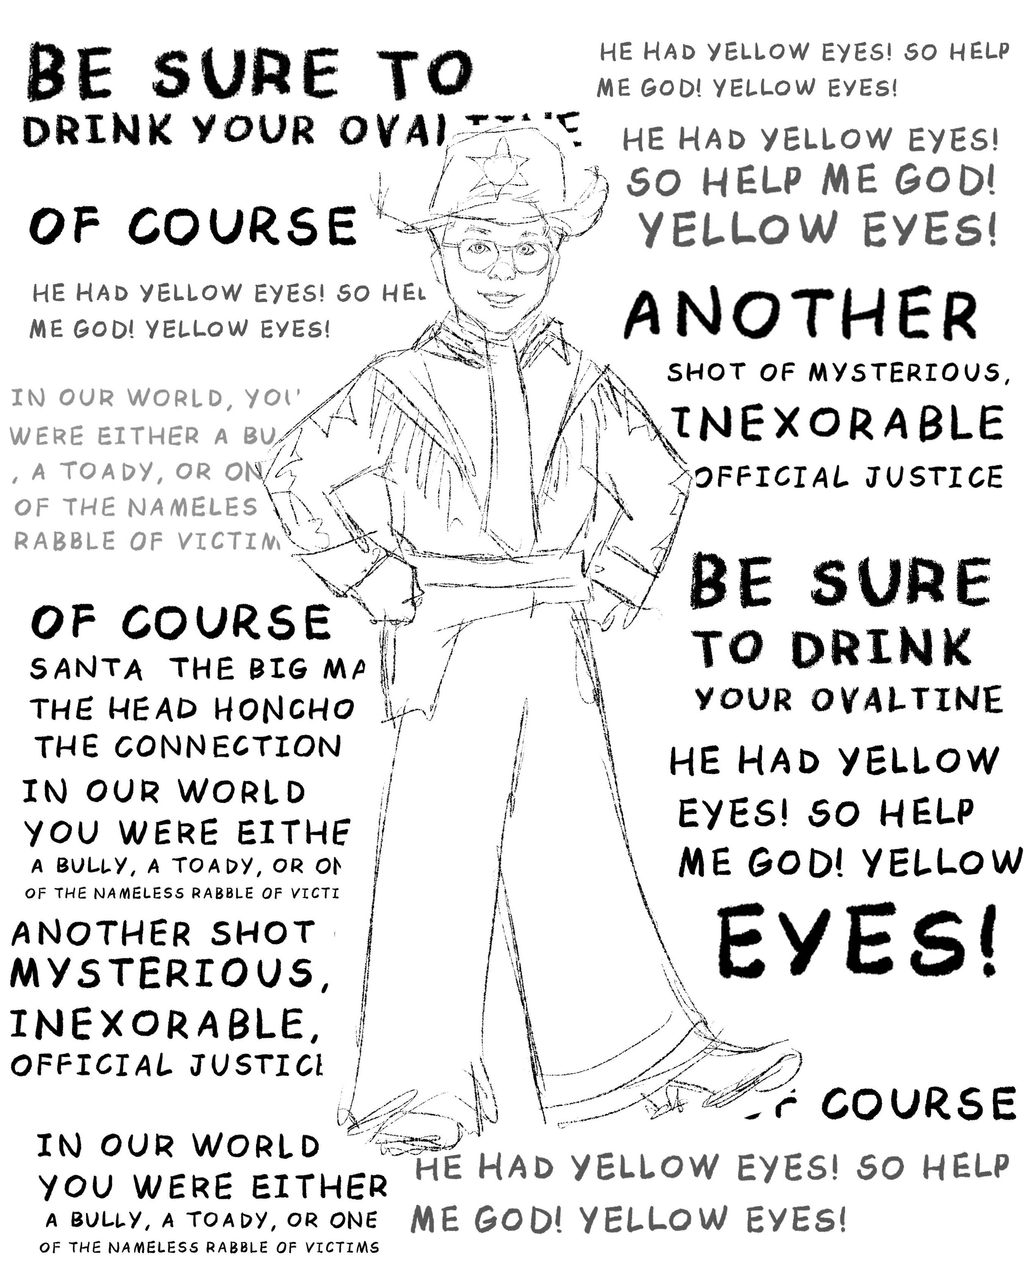 BE SURE TO
DRINK YOUR OVALTINE
OF COURSE
HE HAD YELLOW EYES! SO HEL
ME GOD! YELLOW EYES!
IN OUR WORLD, YOU
WERE EITHER A BU
, A TOADY, OR ON
OF THE NAMELES
RABBLE OF VICTIM
OF COURSE
SANTA THE BIG MA
THE HEAD HONCHO
THE CONNECTION
IN OUR WORLD
YOU WERE EITHE
A BULLY, A TOADY, OR ON
OF THE NAMELESS RABBLE OF VICTI
ANOTHER SHOT
MYSTERIOUS,
INEXORABLE,
OFFICIAL JUSTICE
IN OUR WORLD
YOU WERE EITHER
A BULLY, A TOADY, OR ONE
OF THE NAMELESS RABBLE OF VICTIMS
HE HAD YELLOW EYES! SO HELP
ME GOD! YELLOW EYES!
HE HAD YELLOW EYES!
SO HELP ME GOD!
YELLOW EYES!
ANOTHER
SHOT OF MYSTERIOUS,
INEXORABLE
OFFICIAL JUSTICE
BE SURE
TO DRINK
YOUR OVALTINE
HE HAD YELLOW
EYES! SO HELP
ME GOD! YELLOW
EYES!
OF COURSE
HE HAD YELLOW EYES! SO HELP
ME GOD! YELLOW EYES!